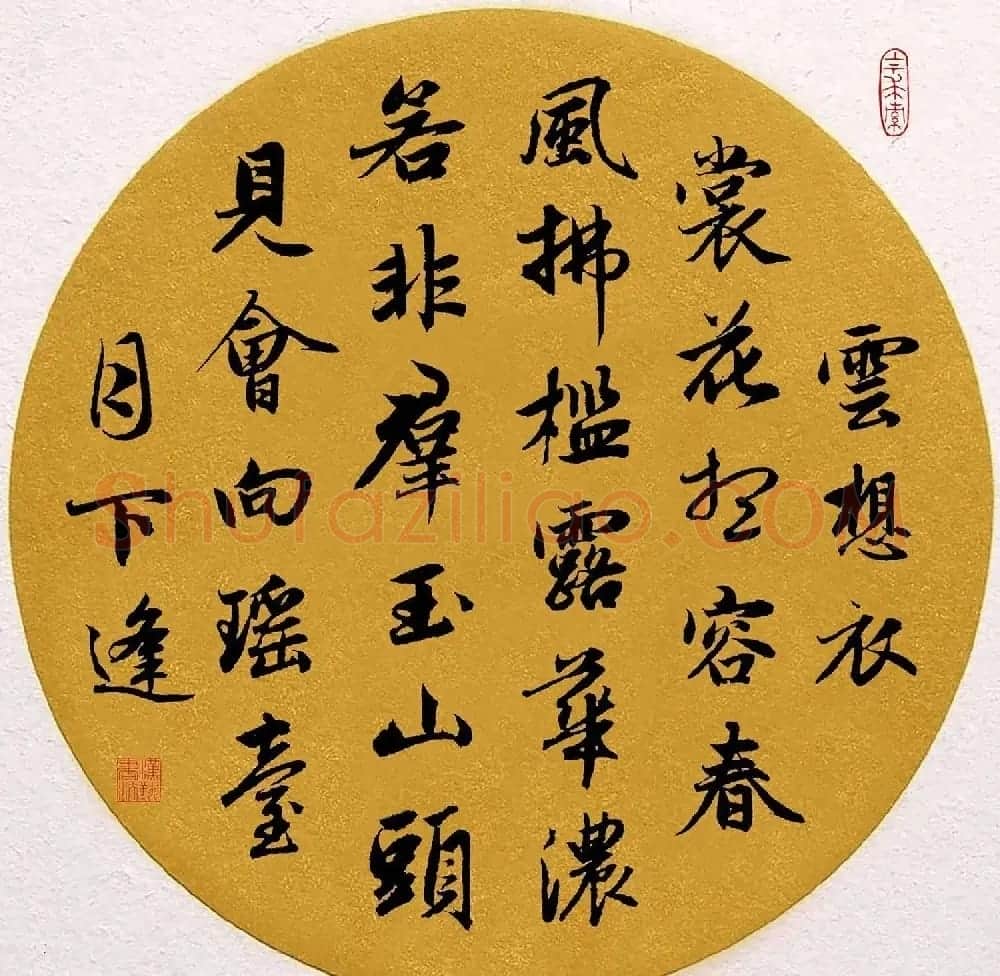 雲想衣
裳花想容春
風拂檻露華濃
若非羣玉山頭
見會向瑶臺
月下逢
Shufaziliao.COM